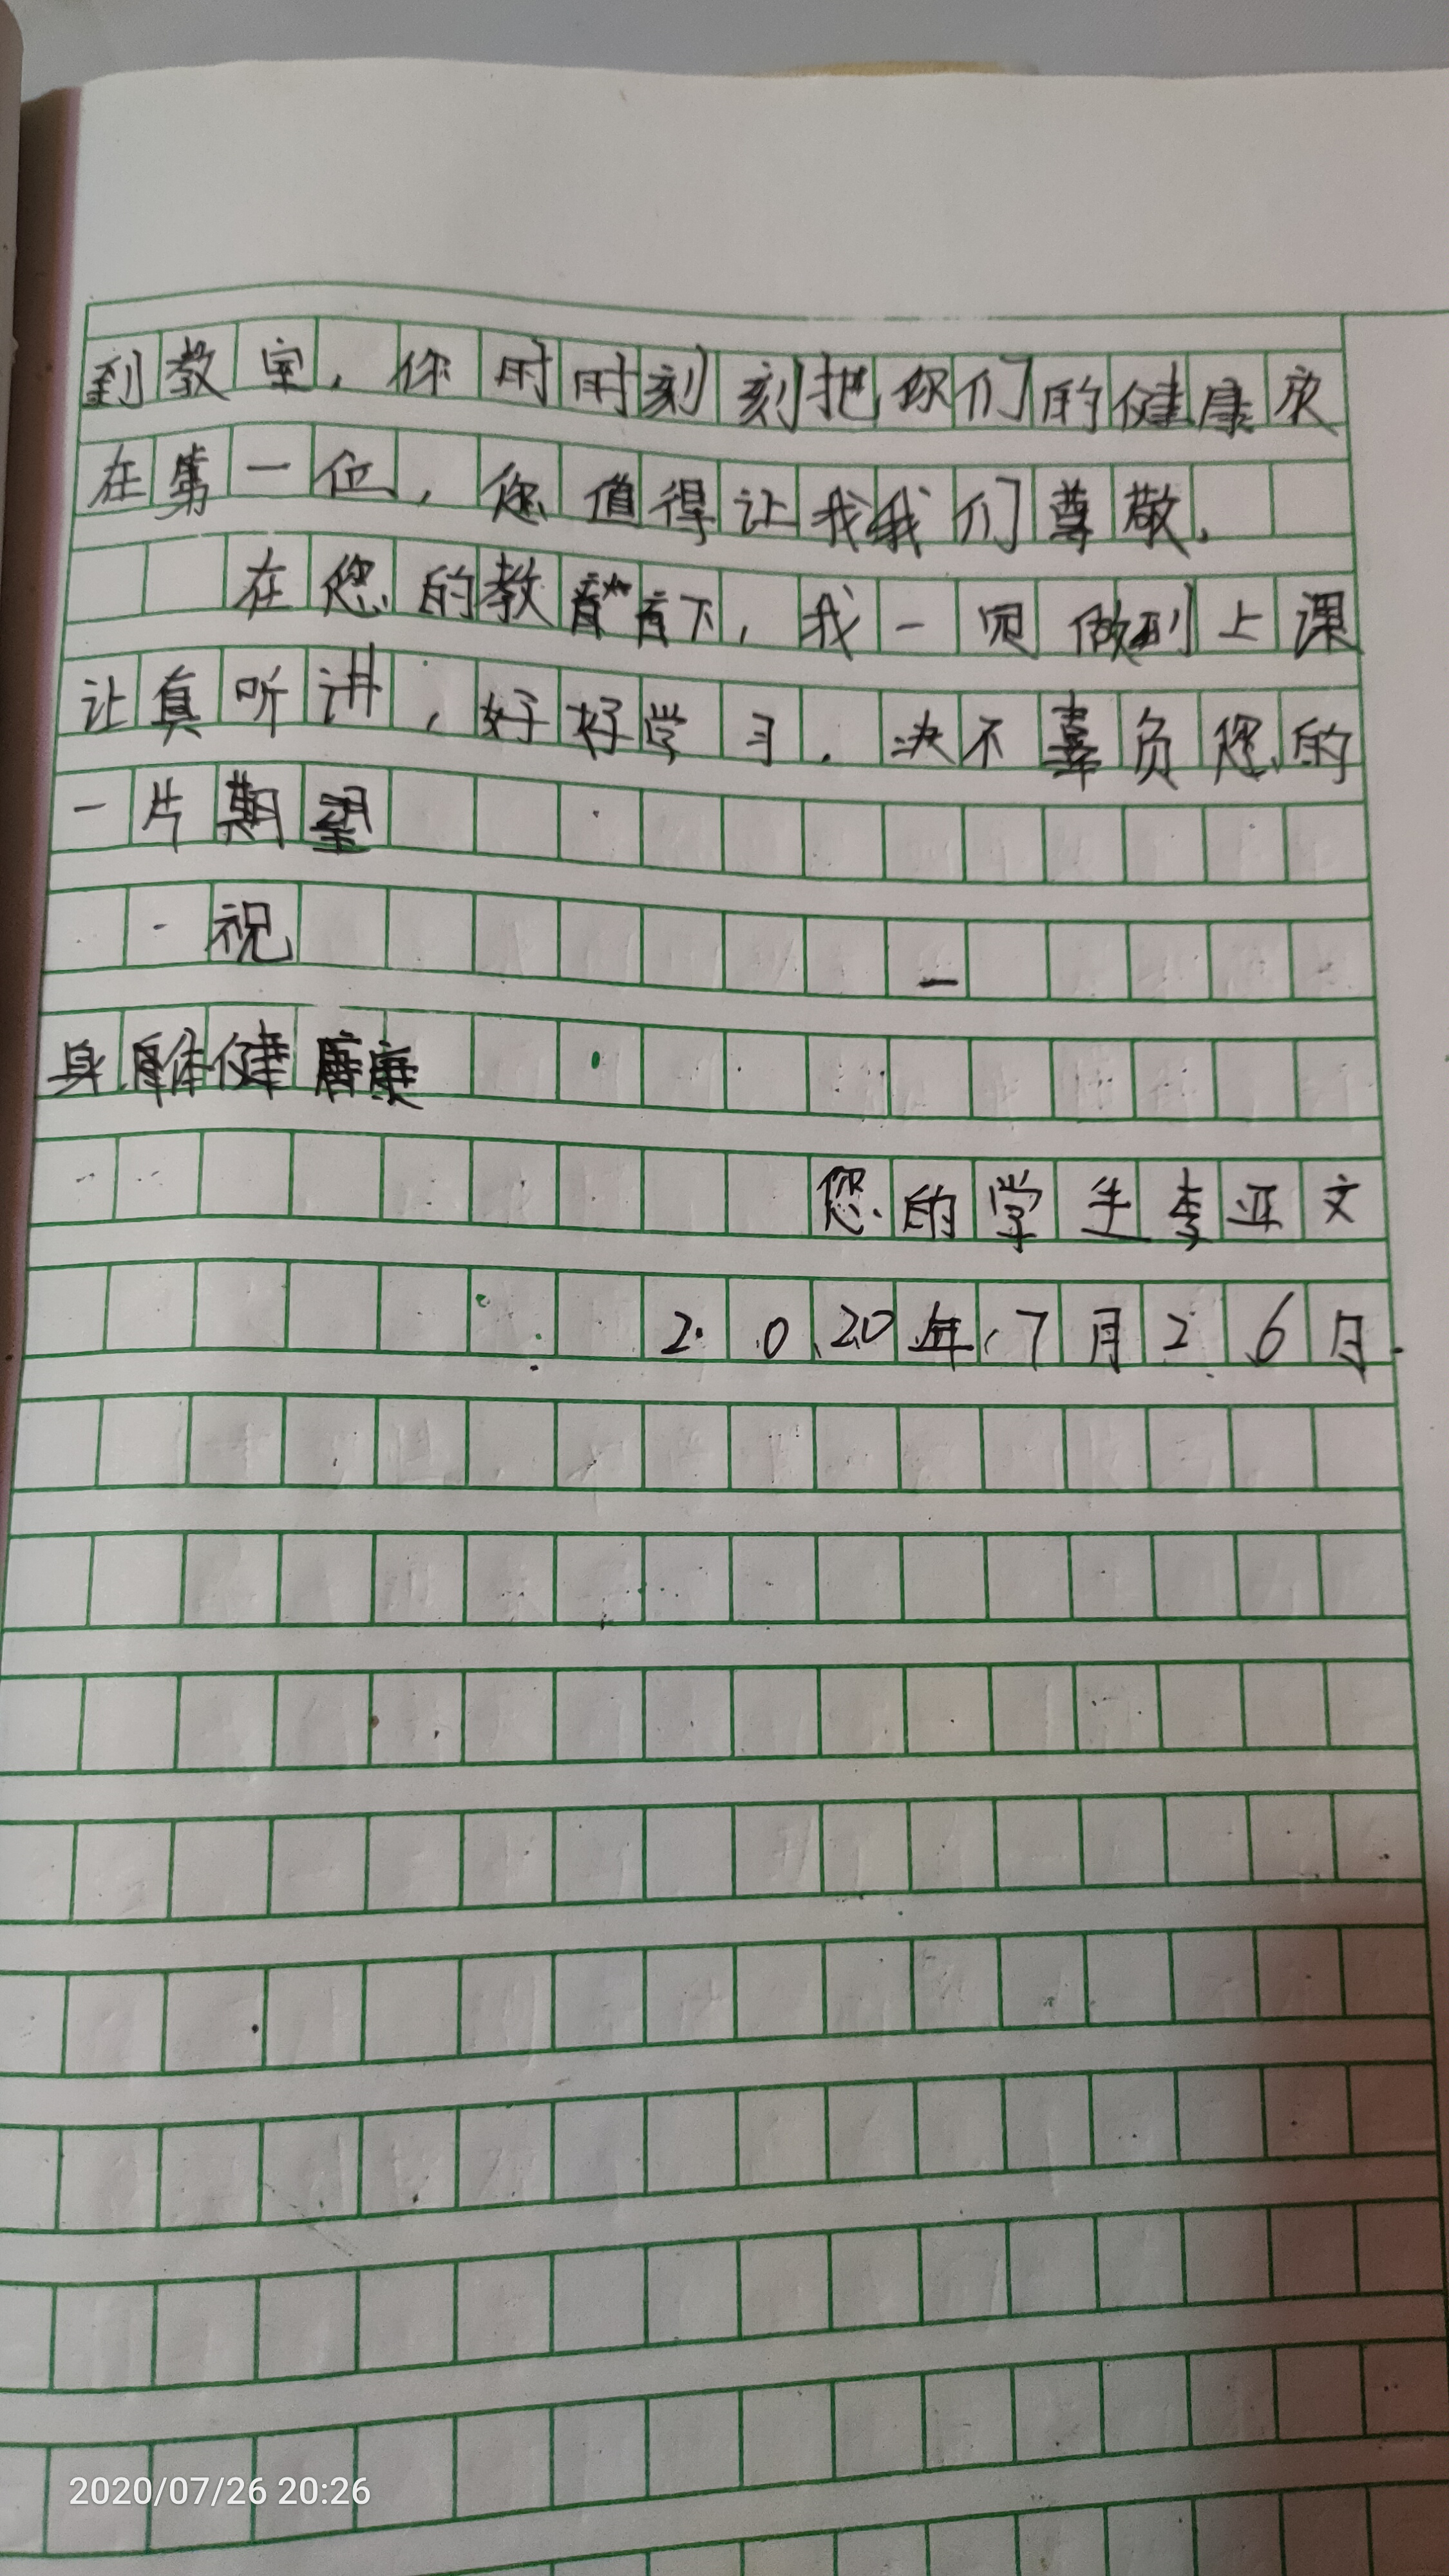 到教室,你时时刻刻把你们的健康放
在第一位,您值得让我我们尊敬.
在您的教育下,我一定做到上课
让真听讲,好好学习.决不辜负您的
一片期望
祝
身体健康
您的学生李亚文
2020年7月26日
2020/07/26 20:26